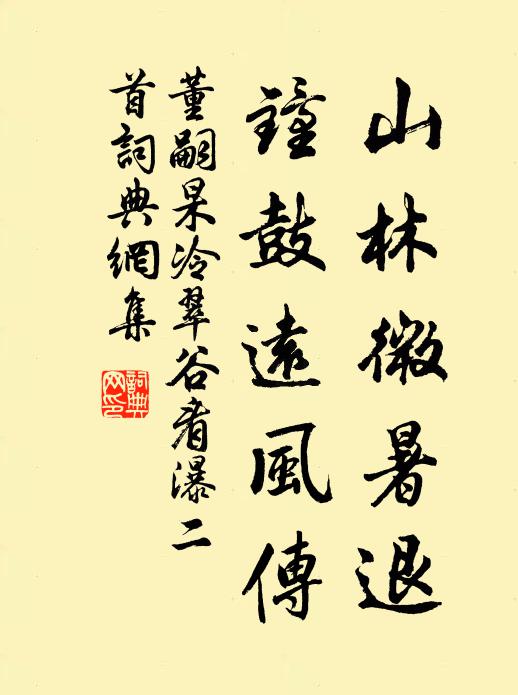 山林微暑退
鐘鼓遠風傳
董嗣杲冷翠谷看瀑二
首詞典網集
詞典
网印